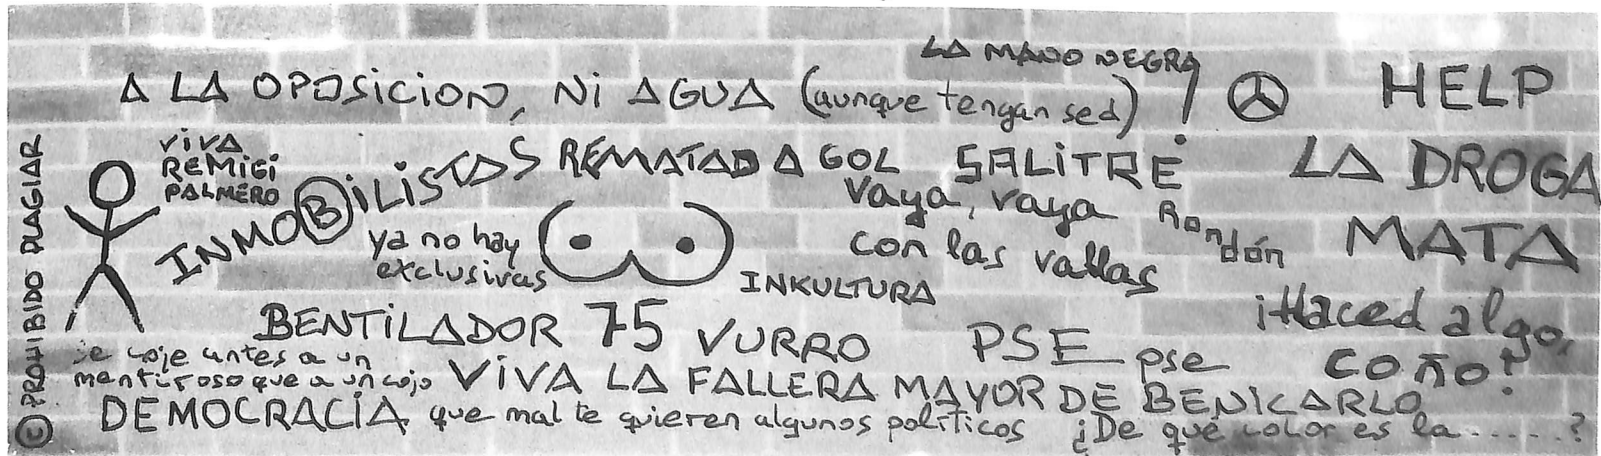 LA MANO NEGRA
A LA OPOSICION, Ni AGUA (aunque tengan sed) !
HELP
© PROHIBIDO PLAGIAR
ViVA
REMIGI
PALMERO
INMOBiLISTAS
REMATAD A GOL
SALiTRE
LA DROGA
MATA
Vaya, vaya
con las vallas
Rondón
ya no hay
exclusivas
INKULTURA
¡Haced algo,
coño!
BENTiLADOR 75 VURRO
PSE pse
se coje antes a un
mentiroso que a un cojo
ViVA LA FALLERA MAYOR DE BENICARLO
DEMOCRACIA que mal te quieren algunos políticos
¿De que color es la.....?